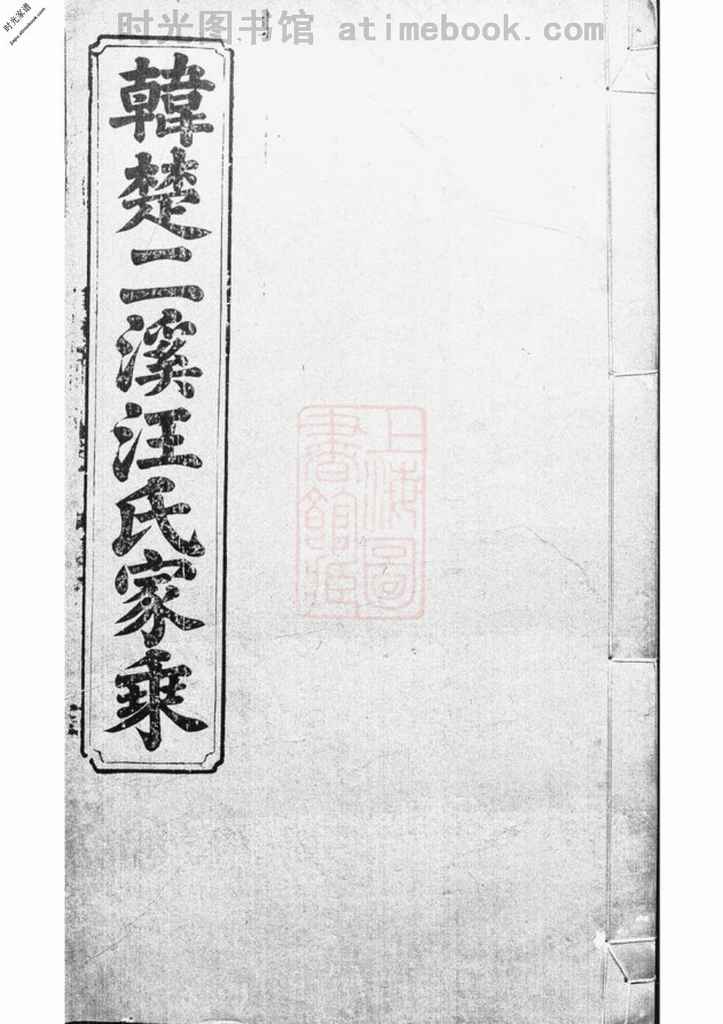 时光图书馆 atimebook.com
时光家谱
jiapu.atimebook.com
韓楚二溪汪氏家乘
上海圖
書館藏